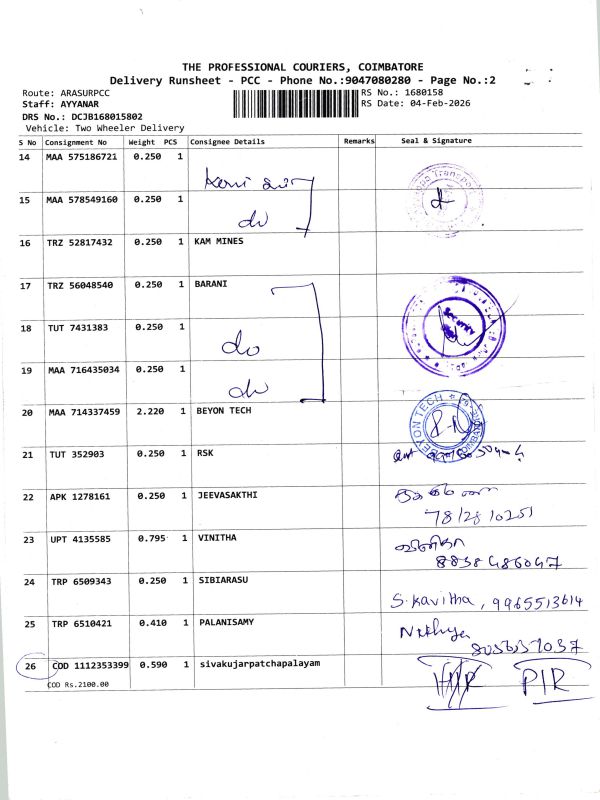 THE PROFESSIONAL COURIERS, COIMBATORE
Delivery Runsheet - PCC - Phone No.:9047080280 - Page No.:2
Route: ARASURPCC
RS No.: 1680158
Staff: AYYANAR
RS Date: 04-Feb-2026
DRS No.: DCJB168015802
Vehicle: Two Wheeler Delivery
S No Consignment No Weight PCS Consignee Details Remarks Seal & Signature
14 MAA 575186721 0.250 1
15 MAA 578549160 0.250 1
do
16 TRZ 52817432 0.250 1 KAM MINES
17 TRZ 56048540 0.250 1 BARANI
Security
18 TUT 7431383 0.250 1
do
19 MAA 716435034 0.250 1
do
20 MAA 714337459 2.220 1 BEYON TECH
BEYON TECH
21 TUT 352903 0.250 1 RSK
22 APK 1278161 0.250 1 JEEVASAKTHI
23 UPT 4135585 0.795 1 VINITHA
8838486047
24 TRP 6509343 0.250 1 SIBIARASU
S. Kavitha, 9965513614
25 TRP 6510421 0.410 1 PALANISAMY
Nithya
26 COD 1112353399 0.590 1 sivakujarpatchapalayam
COD Rs.2100.00
PIR